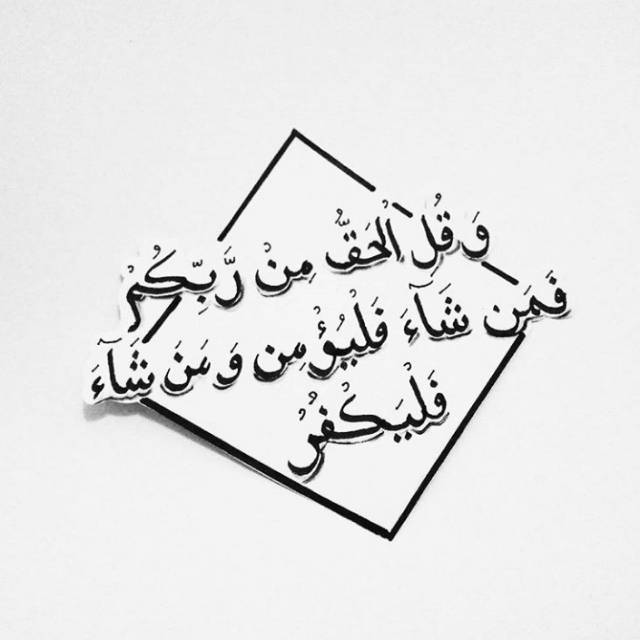 وَقُلِ الْحَقُّ مِنْ رَّبِّكُمْ
فَمَن شَآءَ فَلْيُؤْمِن وَمَنْ شَآءَ
فَلْيَكْفُرْ